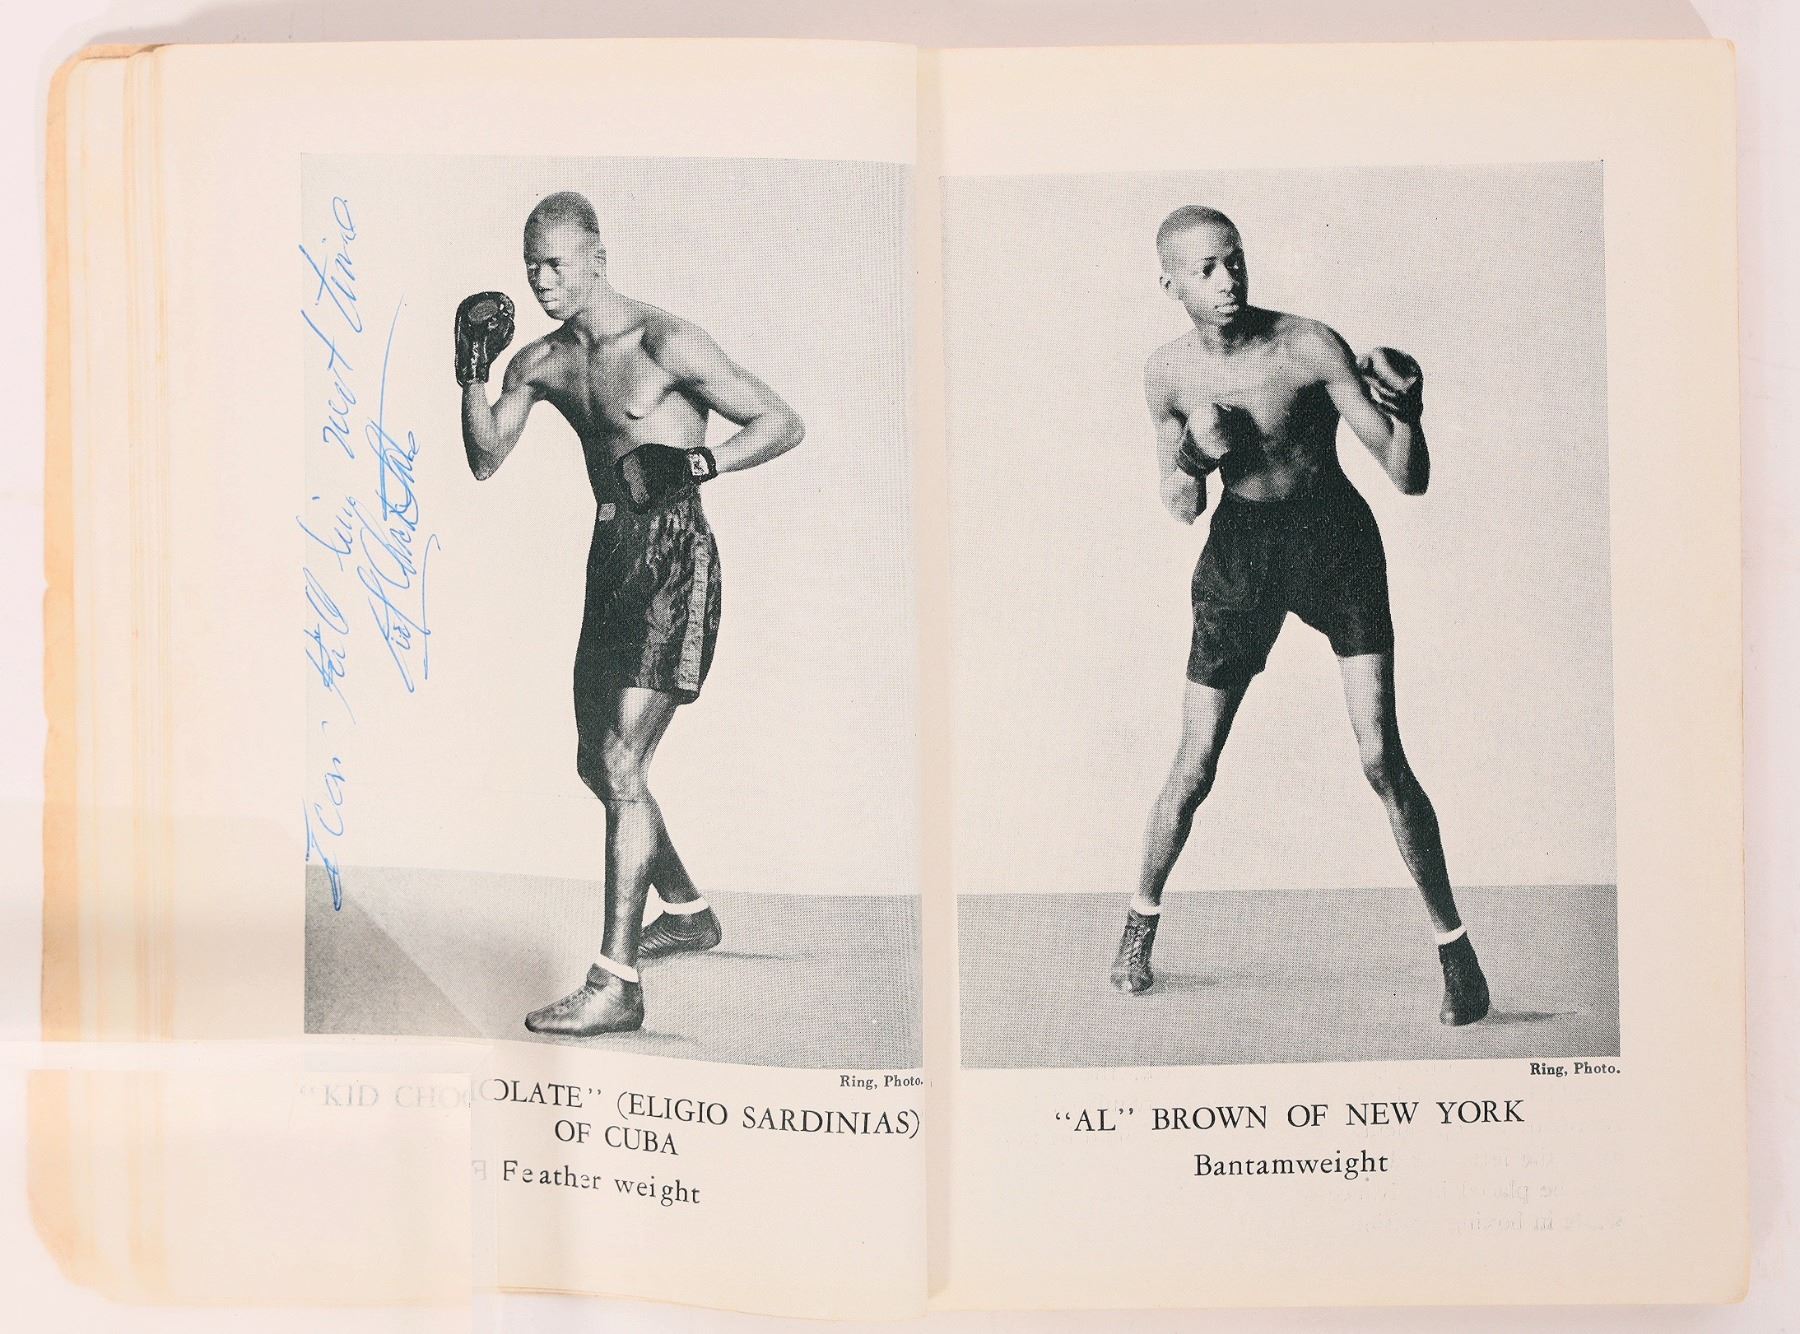 I can still lick him next time
Kid Chocolate
Ring, Photo.
"KID CHOCOLATE" (ELIGIO SARDINIAS)
OF CUBA
Feather weight
Ring, Photo.
"AL" BROWN OF NEW YORK
Bantamweight